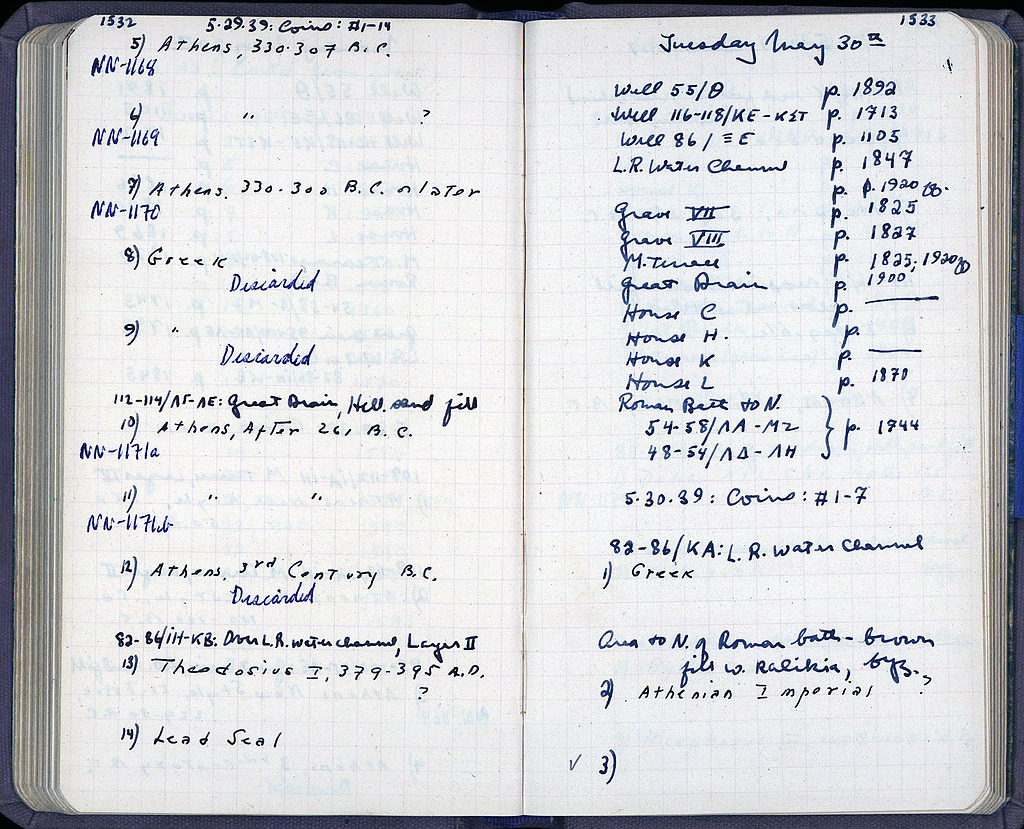 1532
5·29·39: Coins: #1-14
5) Athens, 330-307 B.C.
NN-1168
6) " ?
NN-1169
7) Athens. 330-300 B.C. or later
NN-1170
8) Greek
Discarded
9) "
Discarded
112-114/ΛΓ-ΛΕ: Great Drain, Hell. sand fill
10) Athens, After 261 B.C.
NN-1171a
11) " "
NN-1171b
12) Athens, 3rd Century B.C.
Discarded
82-86/ΙΗ-ΚΒ: Over L.R. water channel, Layer II
13) Theodosius I, 379-395 A.D.
?
14) Lead Seal
1533
Tuesday May 30th
Well 55/Θ p. 1892
Well 116-118/ΚΕ-ΚΣΤ p. 1713
Well 86/ΞΕ p. 1105
L.R. Water Channel p. 1847
p. p. 1920
Grave VII p. 1825
Grave VIII p. 1827
M. Terrace p. 1825; 1920
Great Drain p. 1900
House C p.
House H. p.
House K p.
House L p. 1870
Roman Bath to N.
54-58/ΛΑ-ΜΖ } p. 1744
48-54/ΛΔ-ΛΗ
5·30·39: Coins: #1-7
82-86/ΚΑ: L.R. Water Channel
1) Greek
Area to N. of Roman bath - brown
fill w. Ralikia, byz.
2) Athenian Imperial ?
✓ 3)